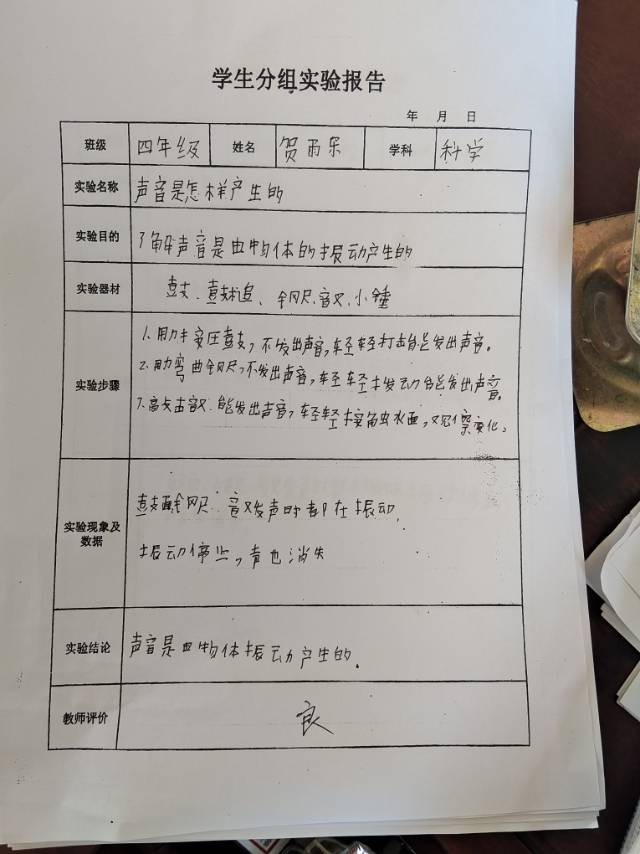 学生分组实验报告
年 月 日
班级 四年级 姓名 贺雨乐 学科 科学
实验名称 声音是怎样产生的
实验目的 了解声音是由物体的振动产生的
实验器材 鼓、鼓槌、钢尺、音叉、小锤
实验步骤
1.用力按压鼓,不发出声音,轻轻打击能发出声音。
2.用力弯曲钢尺,不发出声音,轻轻拨动能发出声音。
3.敲击音叉能发出声音,轻轻接触水面,观察变化。
实验现象及数据
鼓面钢尺、音叉发声时都在振动,
振动停止,声也消失
实验结论 声音是由物体振动产生的。
教师评价 良